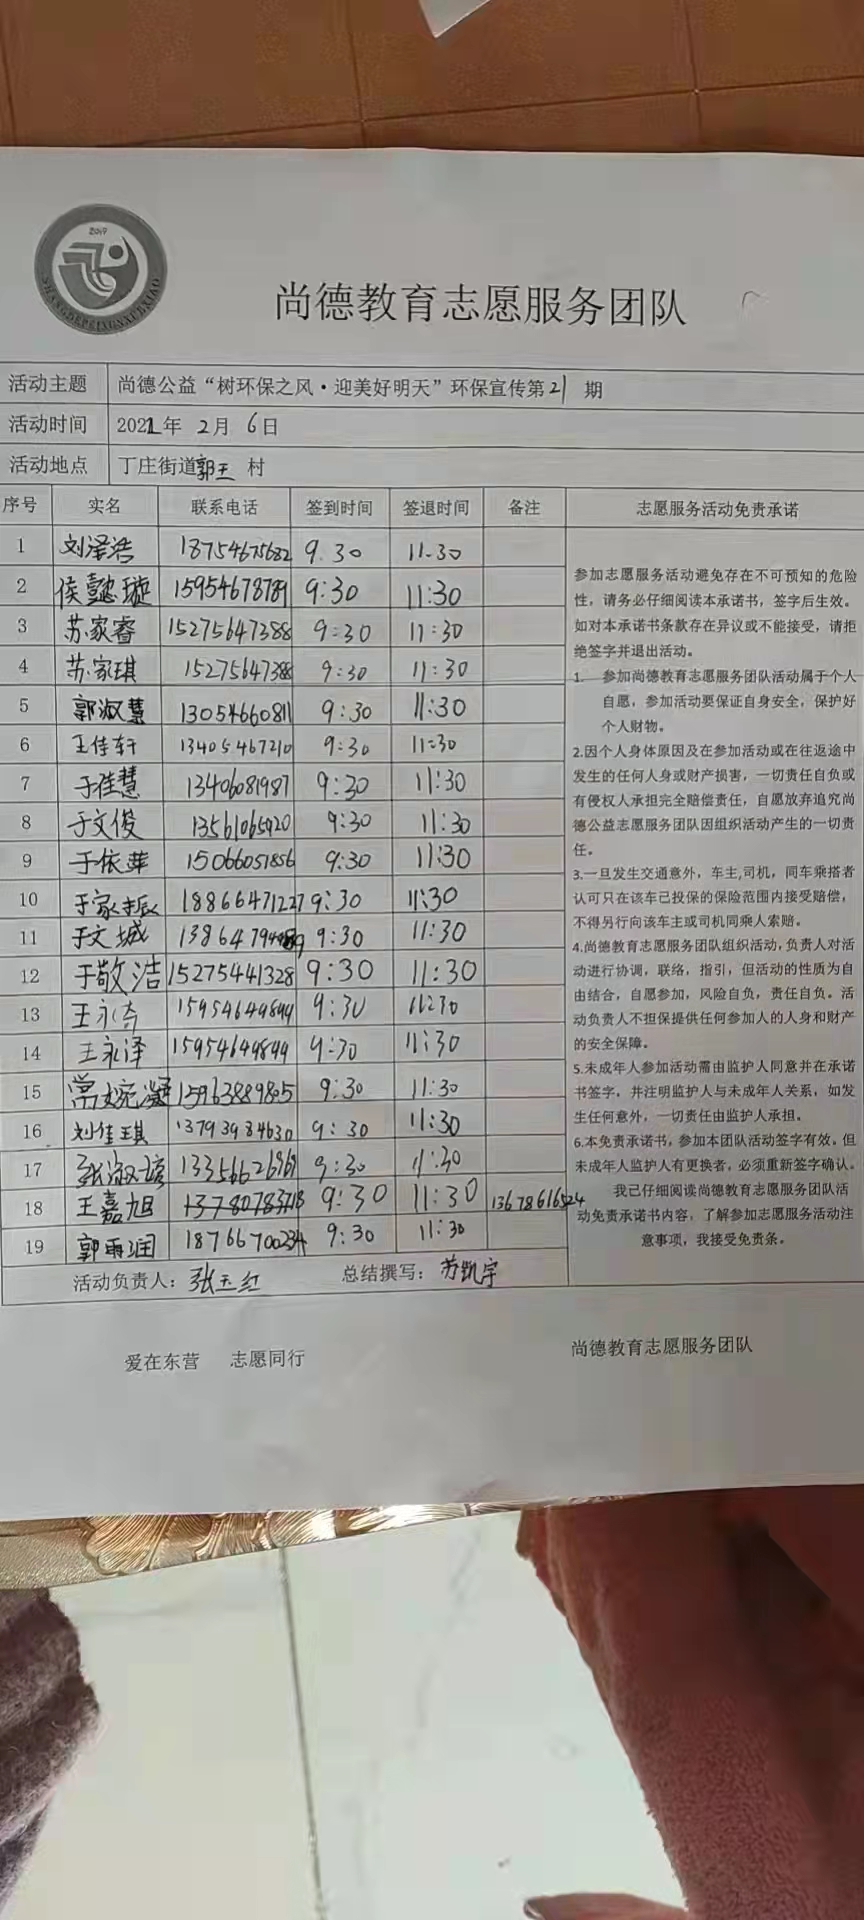 2019
SHANGDEPEIXUNXUEXIAO
尚德教育志愿服务团队
活动主题 尚德公益“树环保之风·迎美好明天”环保宣传第21期
活动时间 2021年 2月 6日
活动地点 丁庄街道郭王 村
序号 实名 联系电话 签到时间 签退时间 备注 志愿服务活动免责承诺
1 刘泽浩 18754675682 9.30 11.30
2 侯懿璇 15954678789 9:30 11:30
3 苏家睿 15275647388 9:30 11:30
4 苏家琪 15275647388 9:30 11:30
5 郭淑慧 13054660811 9:30 11:30
6 王佳轩 13405467210 9:30 11:30
7 于佳慧 13406081987 9:30 11:30
8 于文俊 13561065920 9:30 11:30
9 于依菲 15066051856 9:30 11:30
10 于家振 18866471227 9:30 11:30
11 于文城 9:30 11:30
12 于敬洁 15275441328 9:30 11:30
13 王永奇 15954649844 9:30 11:30
14 王永泽 15954649844 9:30 11:30
15 常婉凝 15963889805 9:30 11:30
16 刘佳琪 13793984630 9:30 11:30
17 9:30 11:30
18 王嘉旭 9:30 11:30 13678616524
19 郭雨润 18766700234 9:30 11:30
活动负责人：张玉红 总结撰写：苏凯宇
参加志愿服务活动避免存在不可预知的危险
性，请务必仔细阅读本承诺书，签字后生效。
如对本承诺书条款存在异议或不能接受，请拒
绝签字并退出活动。
1. 参加尚德教育志愿服务团队活动属于个人
自愿，参加活动要保证自身安全，保护好
个人财物。
2.因个人身体原因及在参加活动或在往返途中
发生的任何人身或财产损害，一切责任自负或
有侵权人承担完全赔偿责任，自愿放弃追究尚
德公益志愿服务团队因组织活动产生的一切责
任。
3.一旦发生交通意外，车主,司机，同车乘搭者
认可只在该车已投保的保险范围内接受赔偿，
不得另行向该车主或司机同乘人索赔。
4.尚德教育志愿服务团队组织活动，负责人对活
动进行协调，联络，指引，但活动的性质为自
由结合，自愿参加，风险自负，责任自负。活
动负责人不担保提供任何参加人的人身和财产
的安全保障。
5.未成年人参加活动需由监护人同意并在承诺
书签字，并注明监护人与未成年人关系，如发
生任何意外，一切责任由监护人承担。
6.本免责承诺书，参加本团队活动签字有效。但
未成年人监护人有更换者，必须重新签字确认。
我已仔细阅读尚德教育志愿服务团队活
动免责承诺书内容，了解参加志愿服务活动注
意事项，我接受免责条。
爱在东营 志愿同行 尚德教育志愿服务团队